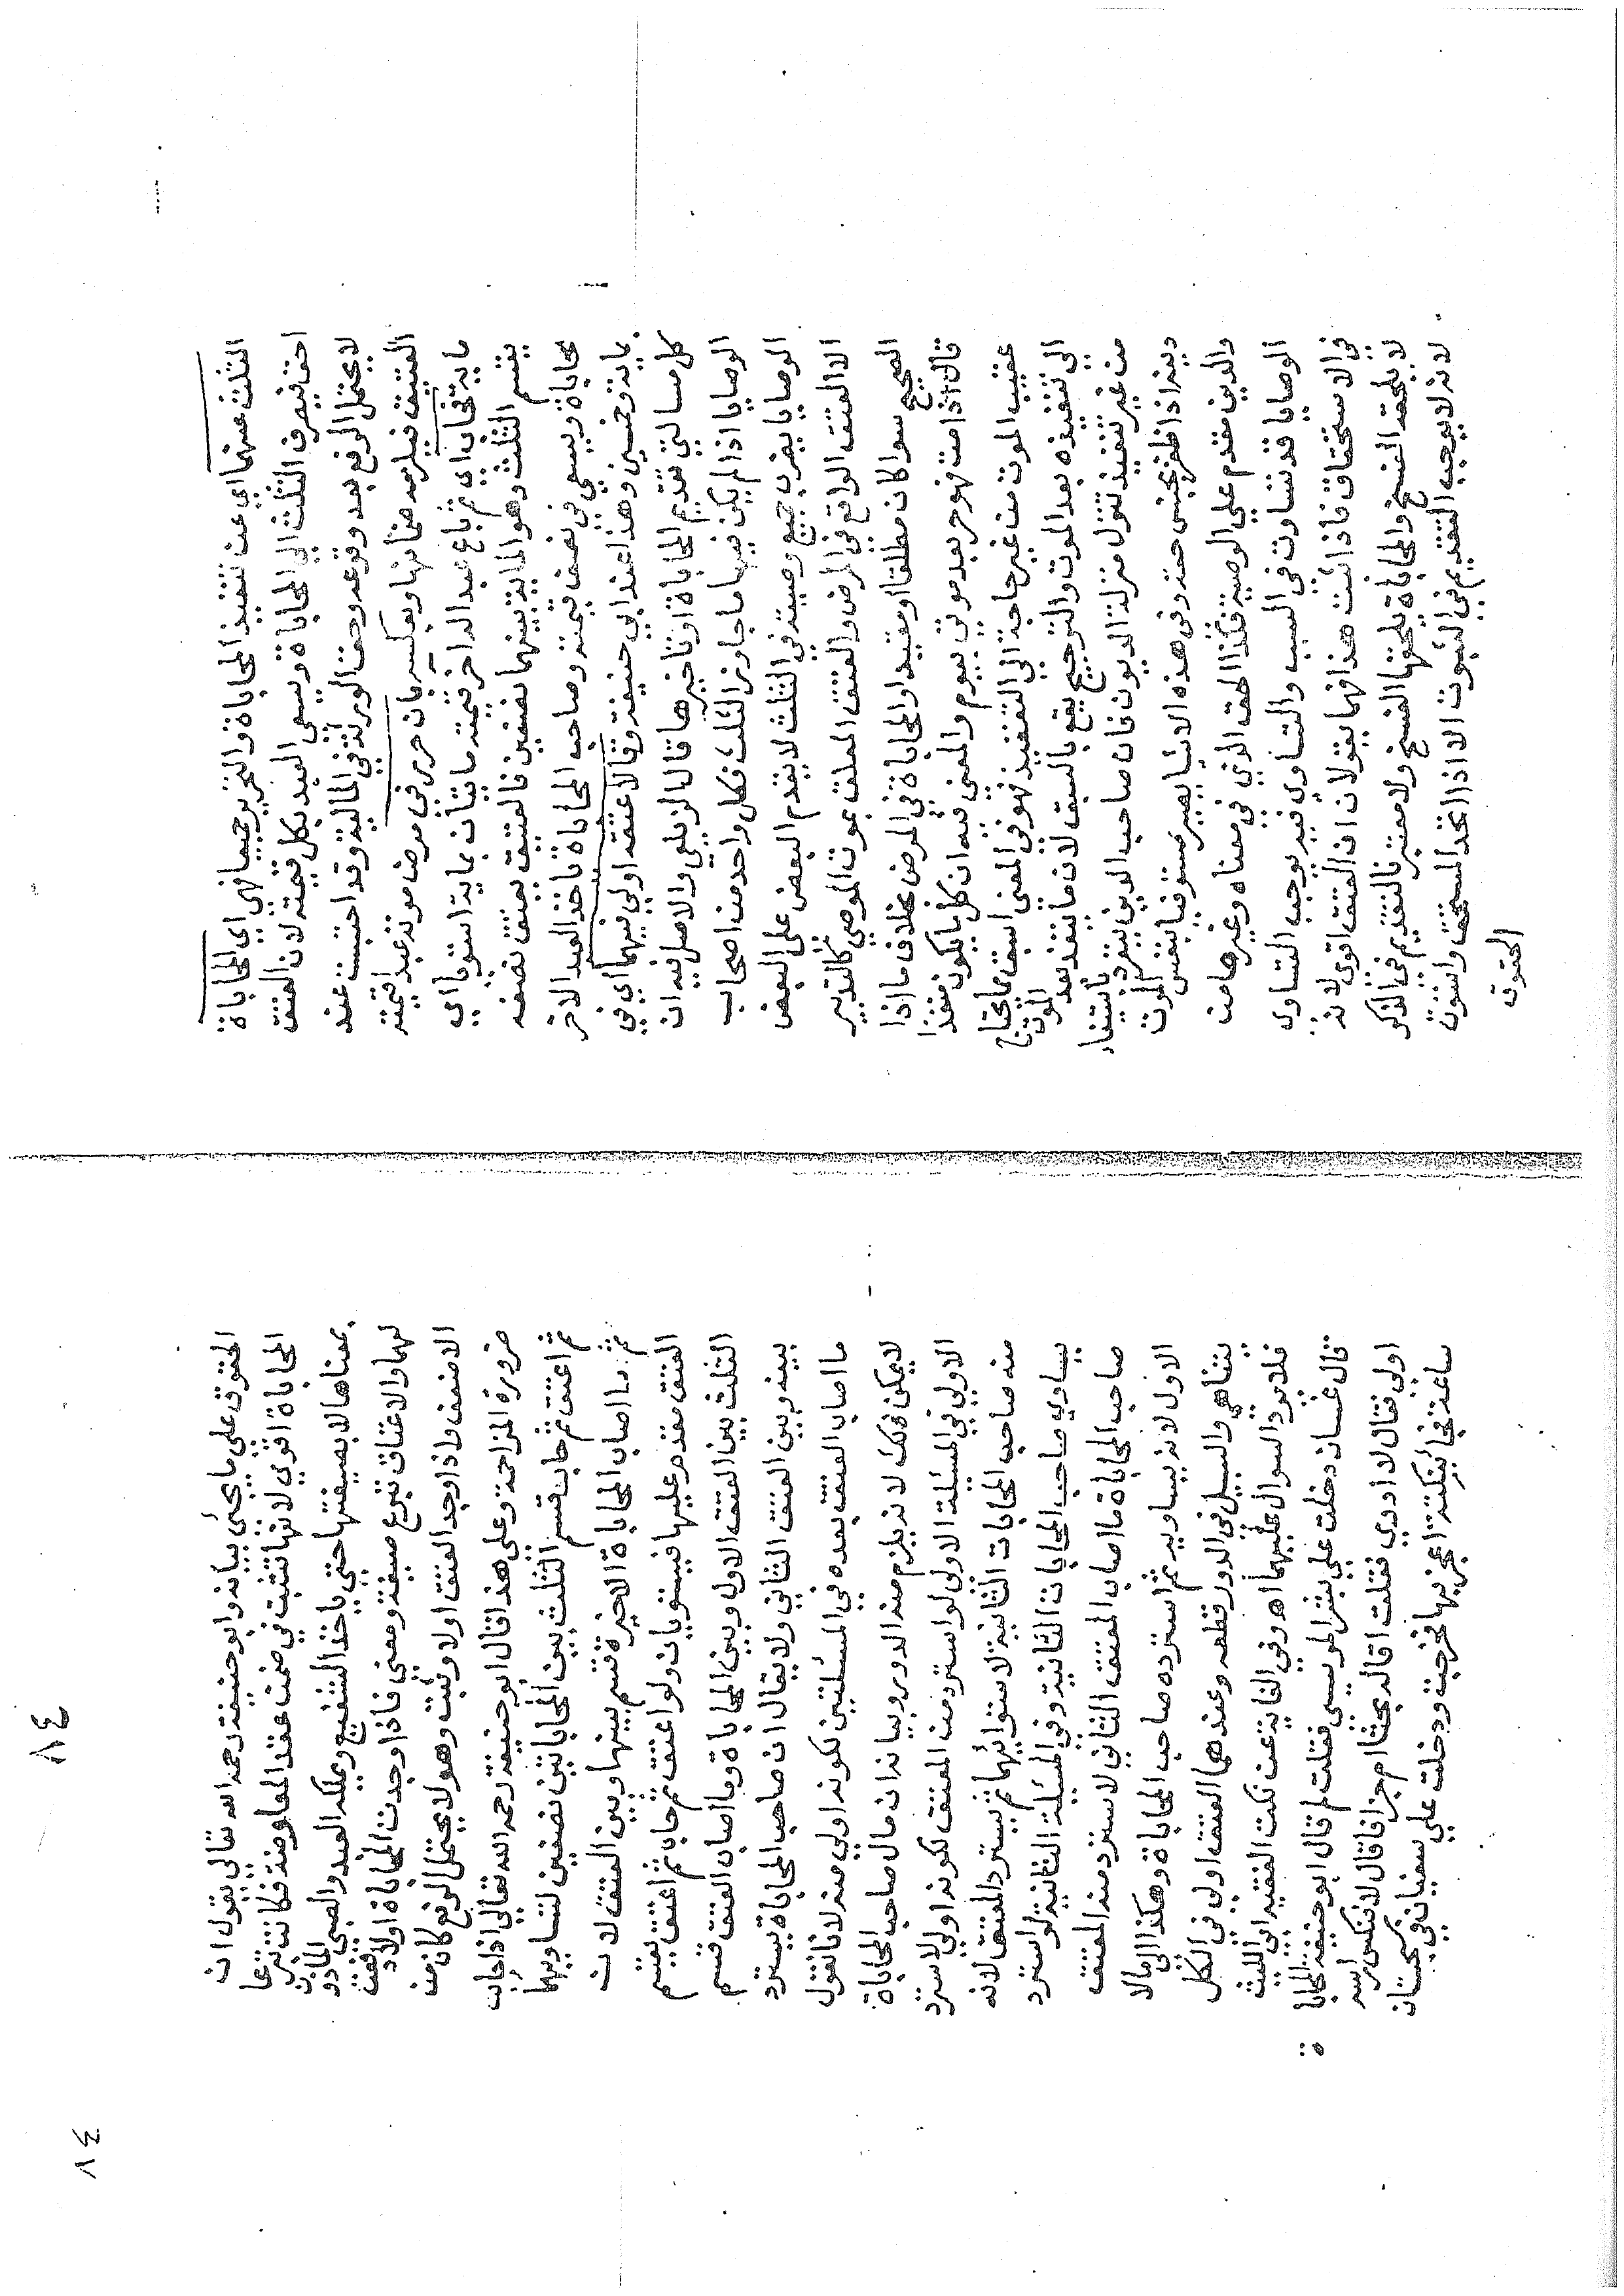 الثلث عنهما اي عن تنفيذ المحاباة والتحرير جميعا فهي اي المحاباة
احق فيصرف الثلث الي المحاباة ويسعي العبد بكل قيمته لان العتق
لا يحتمل الرفع بعد وقوعه وحق الورثة في المالية وقد احتبست عند
العتيق فيلزمه ضمانها وبعكسه بان حرر في مرض موته عبدا قيمته
ماية فحابى اي ثم باع عبدا اخر قيمته مايتان بماية استويا اي
يقسم الثلث وهو الماية بينهما نصفين فالعتيق يعتق نصفه
مجانا ويسعي في نصف قيمته وصاحب المحاباة ياخذ العبد الاخر
بماية وخمسين وهذا عند ابي حنيفة وقالا عتقه اولي فيهما اي في
كل مسالتي تقديم المحاباة او تاخيرها قال الزيلعي والاصل فيه ان
الوصايا اذا لم يكن فيها ما جاوز الثلث فكل واحد من اصحاب
الوصايا يضرب بجميع وصيته في الثلث لا يقدم البعض علي البعض
الا العتق الواقع في المرض والعتق المعلق بموت الموصي كالتدبير
الصحيح سوا كان مطلقا او مقيدا والمحاباة في المرض بخلاف ما اذا
قال اذا مت فهو حر بعد موتي بيوم والمعني فيه ان كل ما يكون منفذا
عقيب الموت من غير حاجة الي التنفيذ فهو في المعني اسبق مما يحتاج
الي تنفيذه بعد الموت والترجيح يقع بالسبق لان ما ينفذ بعد الموت
من غير تنفيذ ينزل منزلة الديون فان صاحب الدين ينفرد باستيفاء
دينه اذا ظفر بجنس حقه وفي هذه الاشيا يصير مستوفيا بنفس الموت
والدين مقدم علي الوصية فكذا الحق الذي في معناه وغيرها من
الوصايا قد تساوت في السبب والتساوي فيه يوجب التساوي
في الاستحقاق فاذا ثبت هذا فهما يقولان ان العتق اقوي لانه
لا يلحقه الفسخ والمحاباة يلحقها الفسخ ولا معتبر بالتقديم في الذكر
لانه لا يوجب التقديم في الثبوت الا اذا اتحد المستحق واستوت
الحقوق
الحقوق علي ما يجئ بيانه وابو حنيفة رحمه الله تعالي يقول ان
المحاباة اقوي لانها تثبت في ضمن عقد المعاوضة فكانت تبرعا
بمعناها لا بصيغتها حتي ياخذ الشفيع ويملكه العبد والصبي الماذون
لهما والاعتاق تبرع صيغة ومعني فاذا وجدت المحاباة اولا دفعت
الاضعف واذا وجد العتق اولا وثبت وهو لا يحتمل الرفع كان من
ضرورة المزاحمة وعلي هذا قال ابو حنيفة رحمه الله تعالي اذا حابى
ثم اعتق ثم حابى قسم الثلث بين المحاباتين نصفين لتساويهما
ثم ما اصاب المحاباة الاخيرة قسم بينها وبين العتق لان
العتق مقدم عليها فيستويان ولو اعتق ثم حابى ثم اعتق يقسم
الثلث بين العتق الاول وبين المحاباة وما اصاب العتق قسم
بينه وبين العتق الثاني ولا يقال ان صاحب المحاباة يسترد
ما اصاب العتق بعده في المسئلتين لكونه اولي منه لانا نقول
لا يمكن ذلك لانه يلزم منه الدور وبيانه ان مال صاحب المحاباة
الاولي في المسئلة الاولي لو استرد من العتق لكونه اولي لاسترد
منه صاحب المحابات الثانية لاستوائهما ثم يسترد العتق لانه
يساوي صاحب المحابات الثانية وفي المسئلة الثانية لو استرد
صاحب المحاباة ما اصاب العتق الثاني لاسترد منه العتق
الاول لانه يساويه ثم استرده صاحب المحاباة وهكذا الي ما لا
يتناهي والسبيل في الدور قطعه وعندهما العتق اولي في الكل
فلا يرد السوال عليهما اه وفي الغاية عن نكت الفقيه ابي الليث
قال غسان دخلت علي بشر المريسي فقلت لم قال ابو حنيفة المحاباة
اولي فقال لا ادري فقلت اقاله بحثا ام جزافا قال فنكس راسه
ساعة فجا بنكتة اعجز بها فخرجت ودخلت علي سفيان في سجستان
٨٤
٨٤